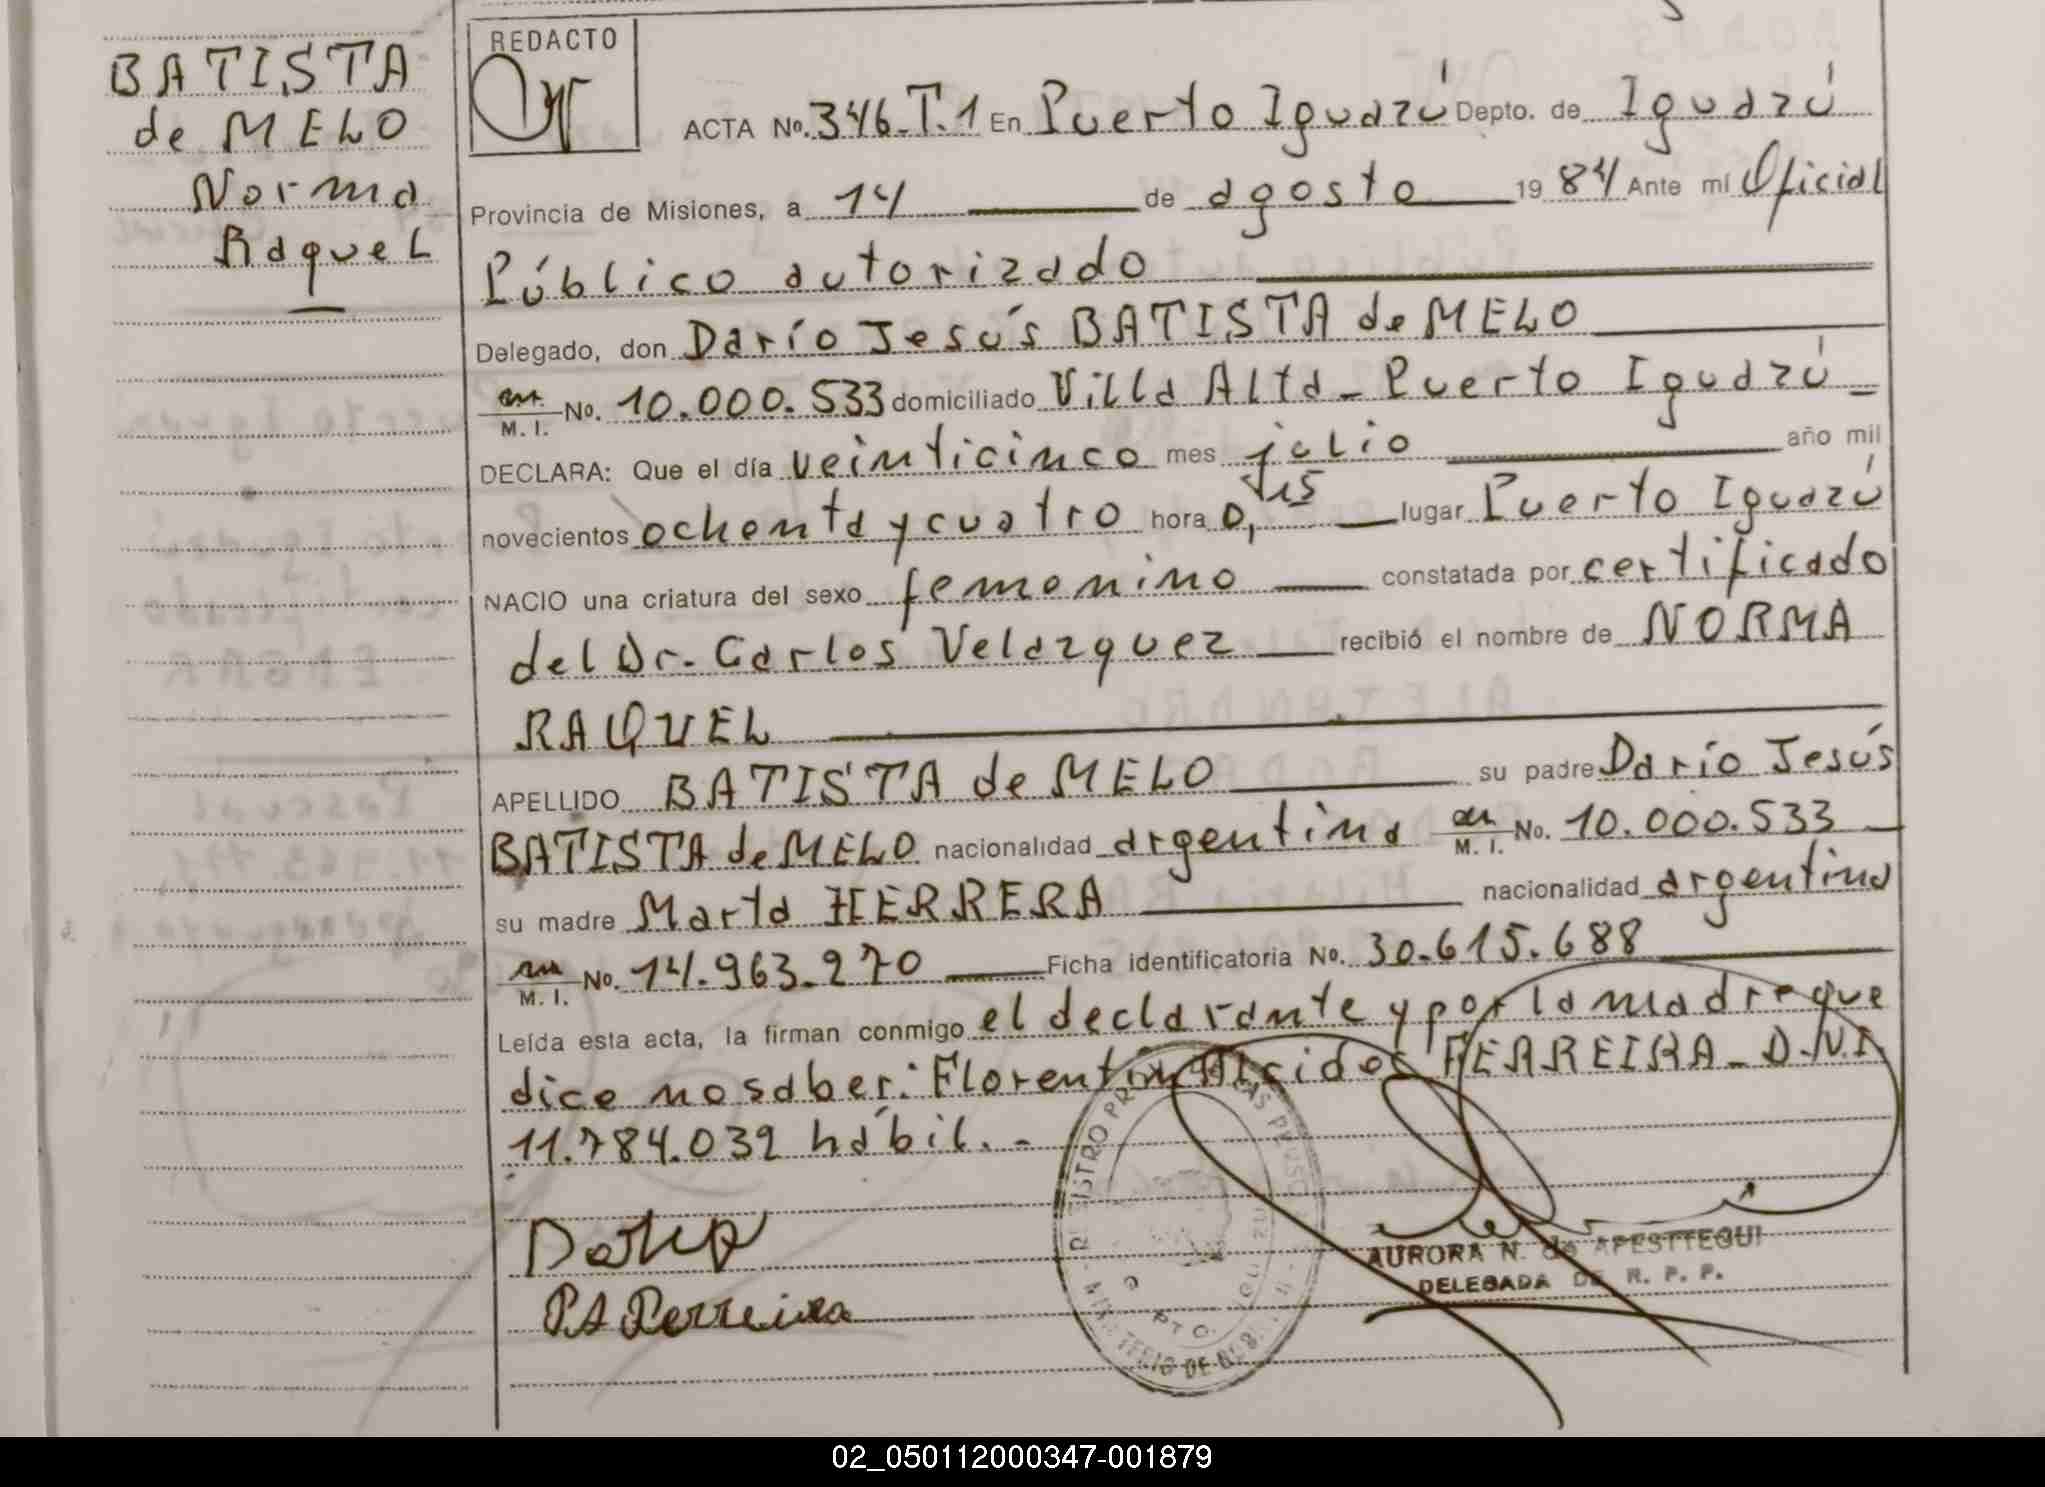 BATISTA
de MELO
Norma
Raquel
REDACTO
ACTA No. 346.T.1 En Puerto Iguazú Depto. de Iguazú
Provincia de Misiones, a 14 de agosto 1984 Ante mí Oficial
Público autorizado
Delegado, don Darío Jesús BATISTA de MELO
M. I. No. 10.000.533 domiciliado Villa Alta - Puerto Iguazú -
DECLARA: Que el día veinticinco mes julio año mil
novecientos ochenta y cuatro hora 0,15 lugar Puerto Iguazú
NACIO una criatura del sexo femenino constatada por certificado
del Dr. Carlos Velazquez recibió el nombre de NORMA
RAQUEL
APELLIDO BATISTA de MELO su padre Darío Jesús
BATISTA de MELO nacionalidad argentina M. I. No. 10.000.533
su madre Marta HERRERA nacionalidad argentina
M. I. No. 14.963.270 Ficha identificatoria No. 30.615.688
Leída esta acta, la firman conmigo el declarante y por la madre que
dice no saber: Florentin Alcides FERREIRA - D.N.I
11.784.032 hábil. -
PA Ferreira
AURORA N. de APESTTEGUI
DELEGADA DE R. P. P.
02_050112000347-001879